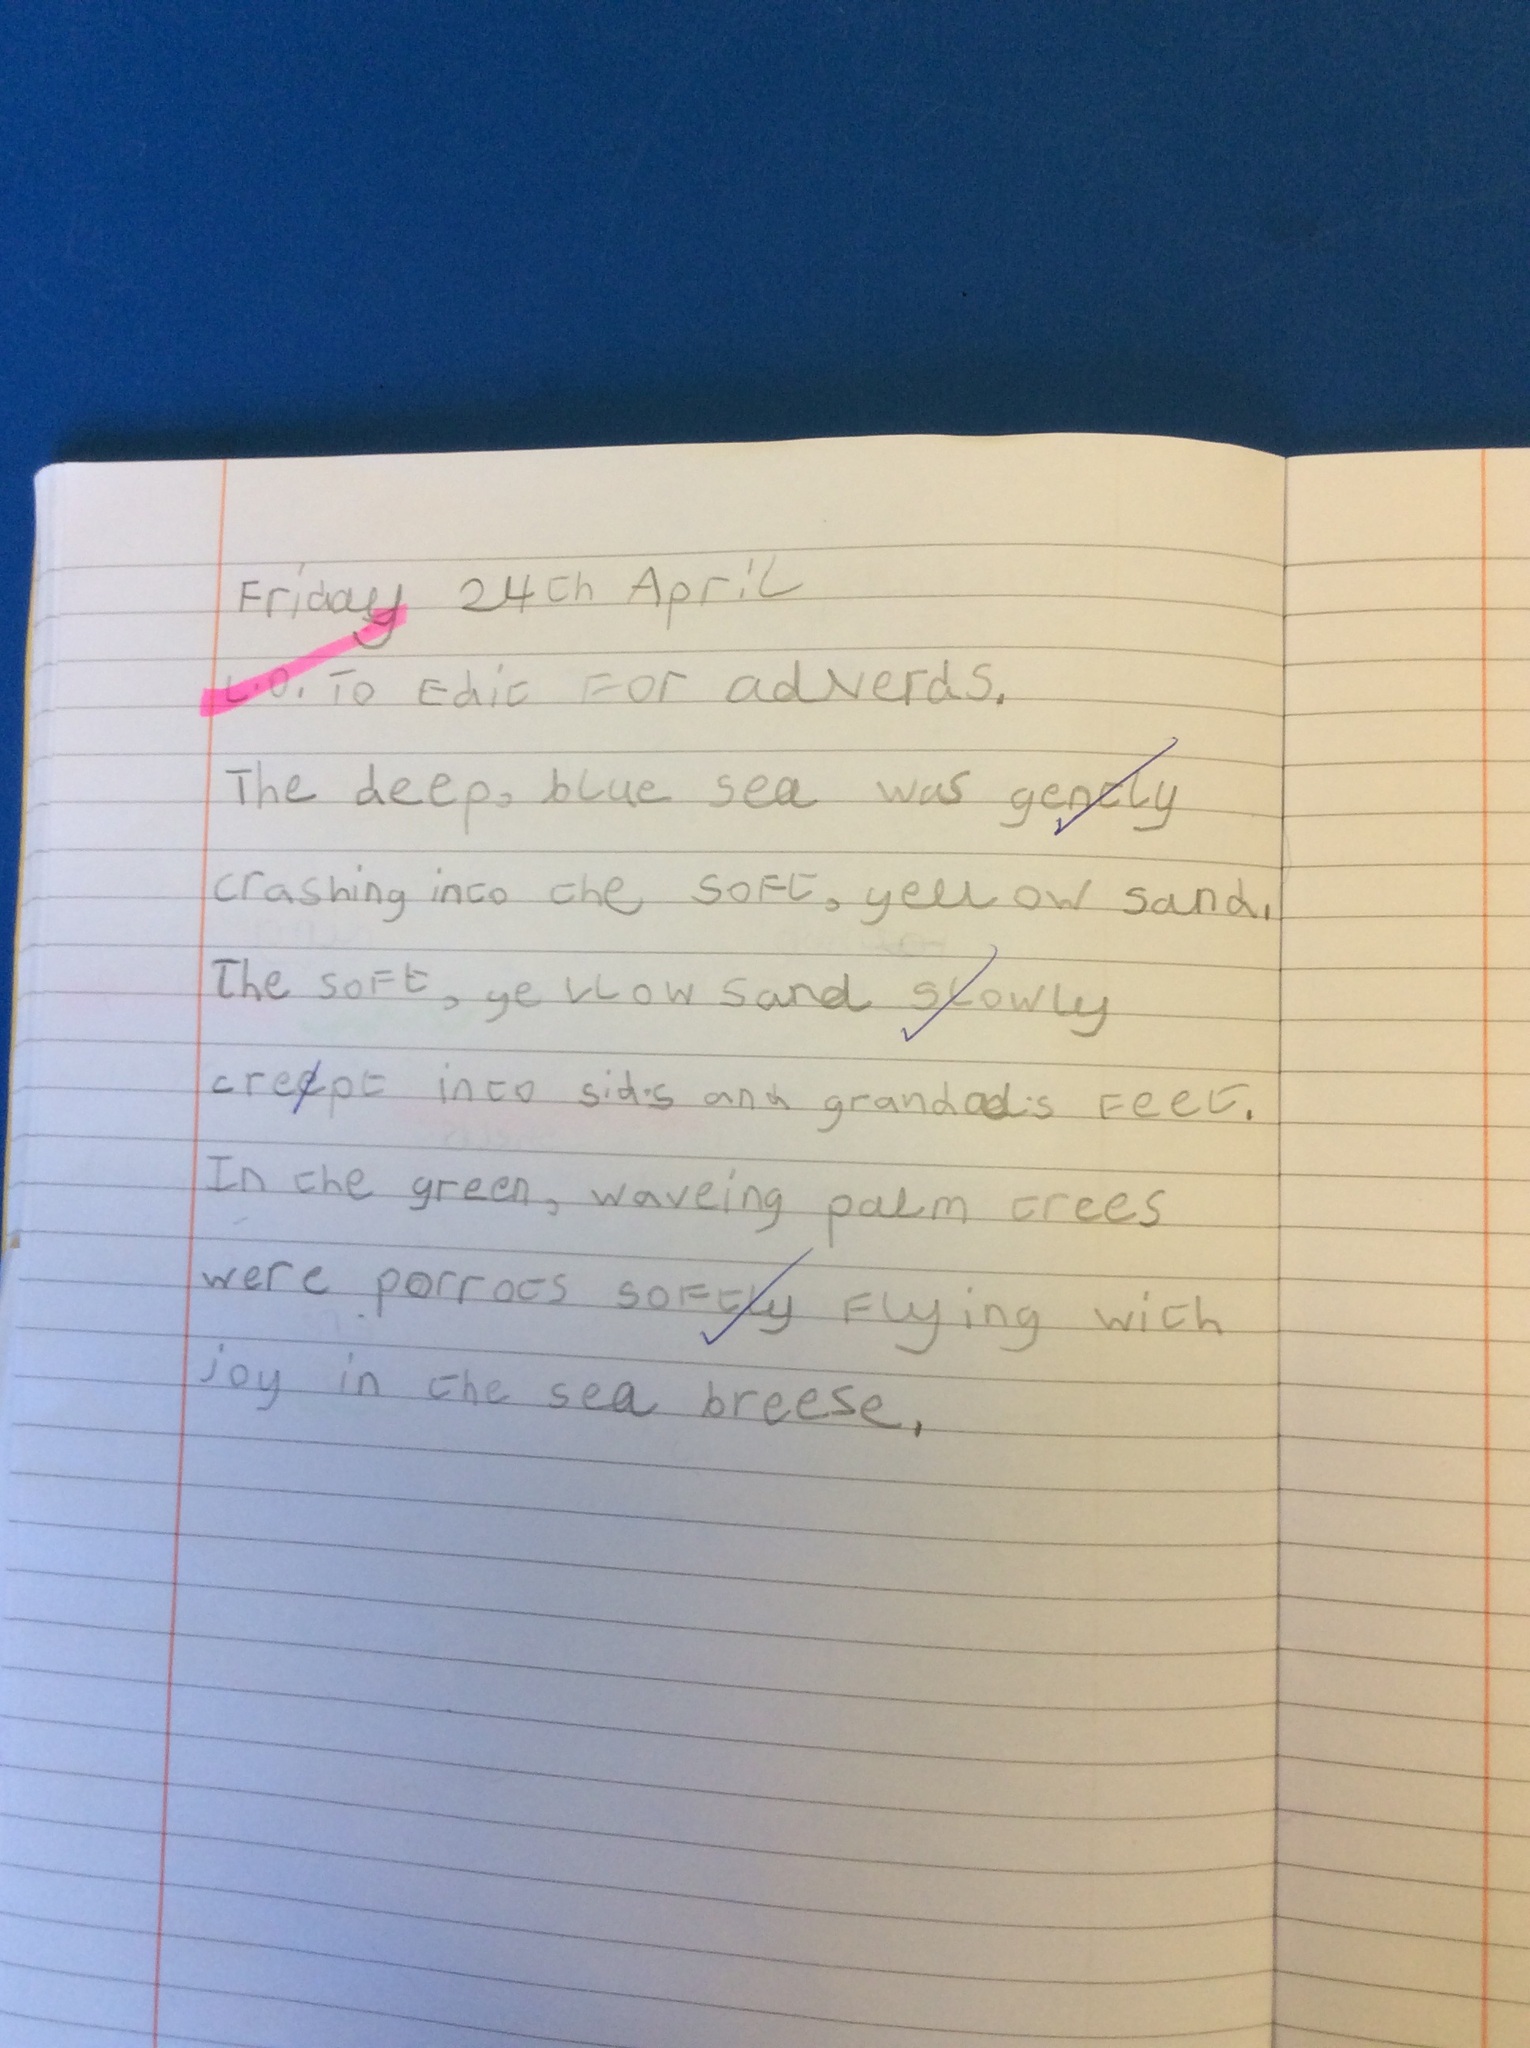 Friday 24th April
L.O. To Edit For adverds.
The deep, blue sea was gently
crashing into the soft, yellow sand.
The soft, yellow sand slowly
creept into sid's and grandad's feet.
In the green, waveing palm trees
were parrots softly flying with
joy in the sea breese.